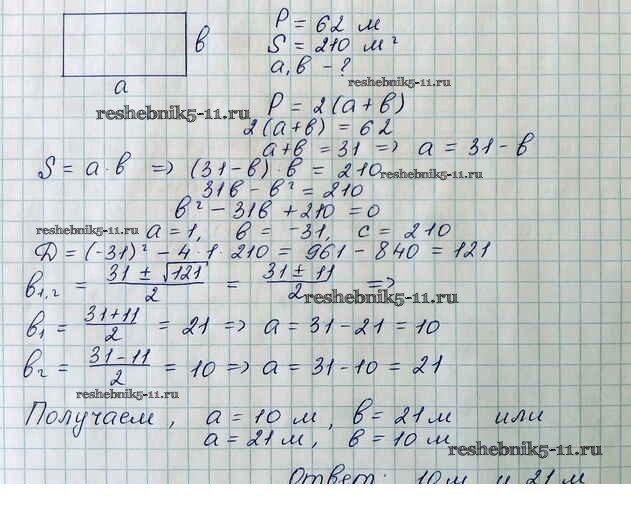 P = 62 м
в
S = 210 м²
а, в - ?
а
reshebnik5-11.ru
reshebnik5-11.ru
P = 2(а+в)
2(а+в) = 62
а+в = 31 => а = 31 - в
S = а·в => (31-в)·в = 210
reshebnik5-11.ru
31в - в² = 210
в² - 31в + 210 = 0
reshebnik5-11.ru
а = 1, в = -31, с = 210
D = (-31)² - 4·1·210 = 961 - 840 = 121
в₁,₂ = (31 ± √121)/2 = (31 ± 11)/2 =>
reshebnik5-11.ru
в₁ = (31+11)/2 = 21 => а = 31 - 21 = 10
в₂ = (31-11)/2 = 10 => а = 31 - 10 = 21
reshebnik5-11.ru
Получаем, а = 10 м, в = 21 м или
а = 21 м, в = 10 м
reshebnik5-11.ru
Ответ: 10 м и 21 м